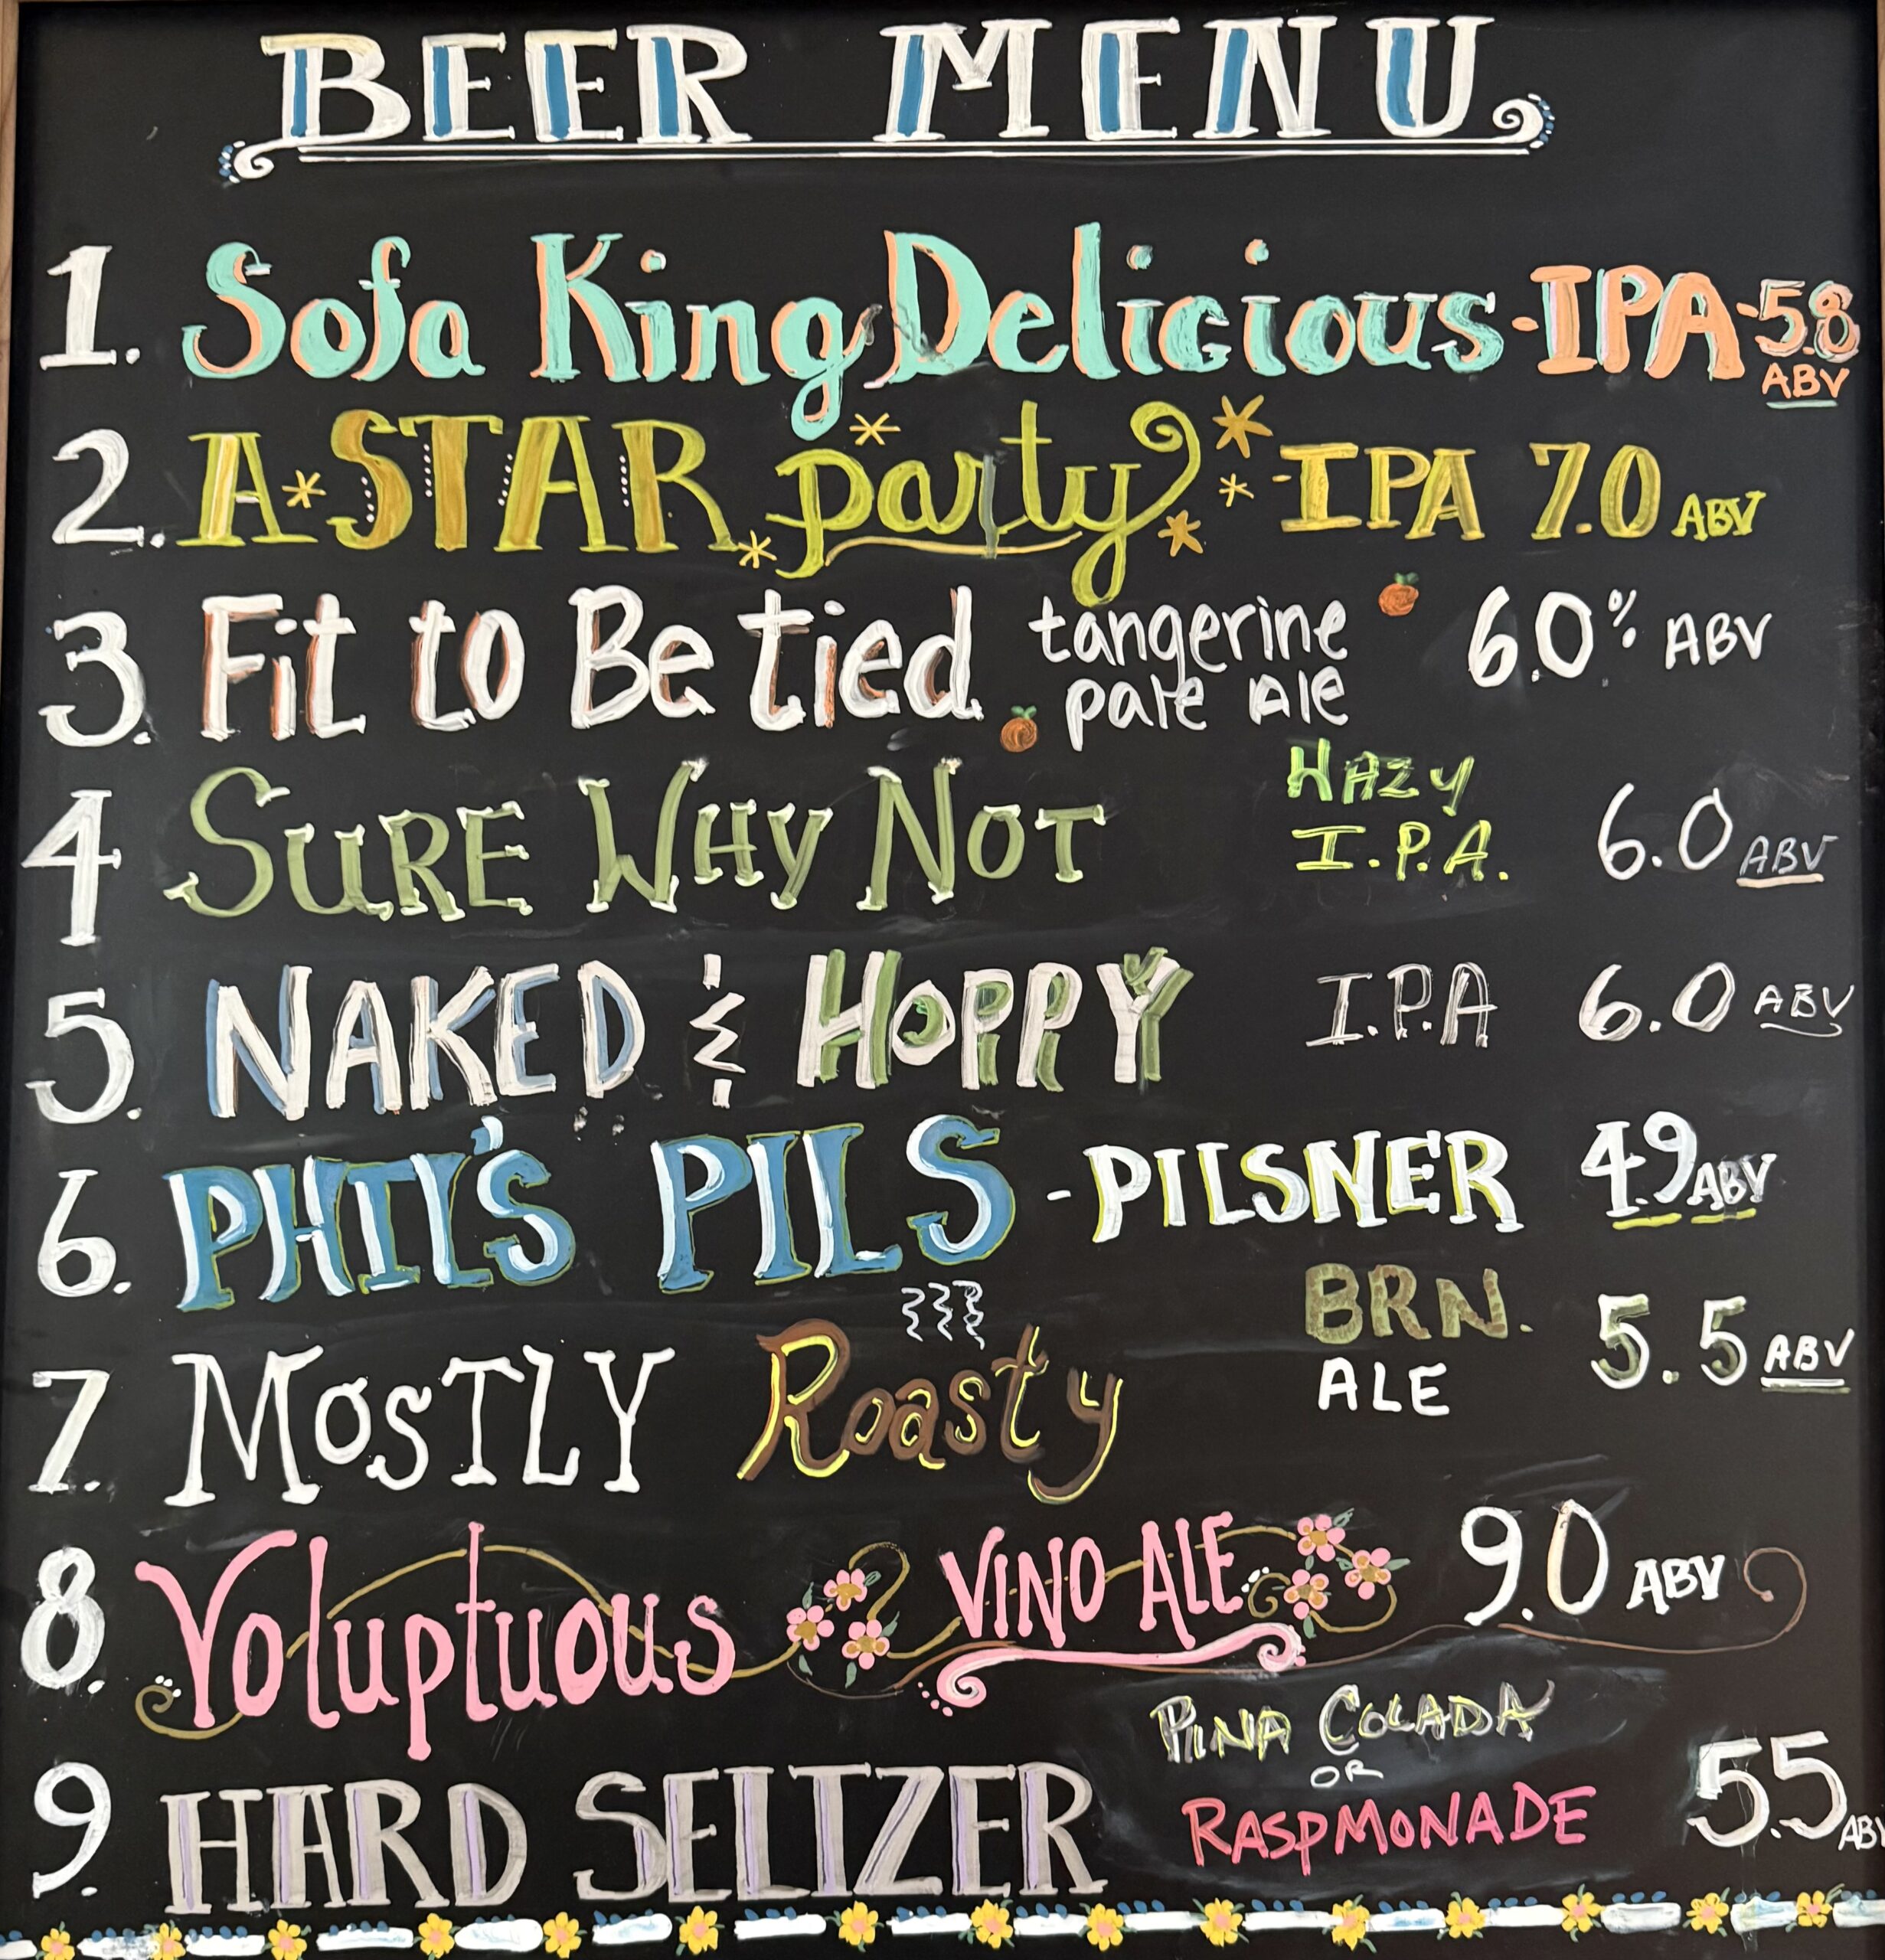 BEER MENU
1. Sofa King Delicious - IPA - 5.8 ABV
2. A STAR party - IPA 7.0 ABV
3. Fit to Be tied tangerine pale Ale 6.0% ABV
4 SURE WHY NOT HAZY I.P.A. 6.0 ABV
5. NAKED & HOPPY I.P.A 6.0 ABV
6. PHIL'S PILS - PILSNER 4.9 ABV
7. MOSTLY Roasty BRN. ALE 5.5 ABV
8. Voluptuous VINO ALE 9.0 ABV
9. HARD SELTZER PINA COLADA OR RASPMONADE 5.5 ABV